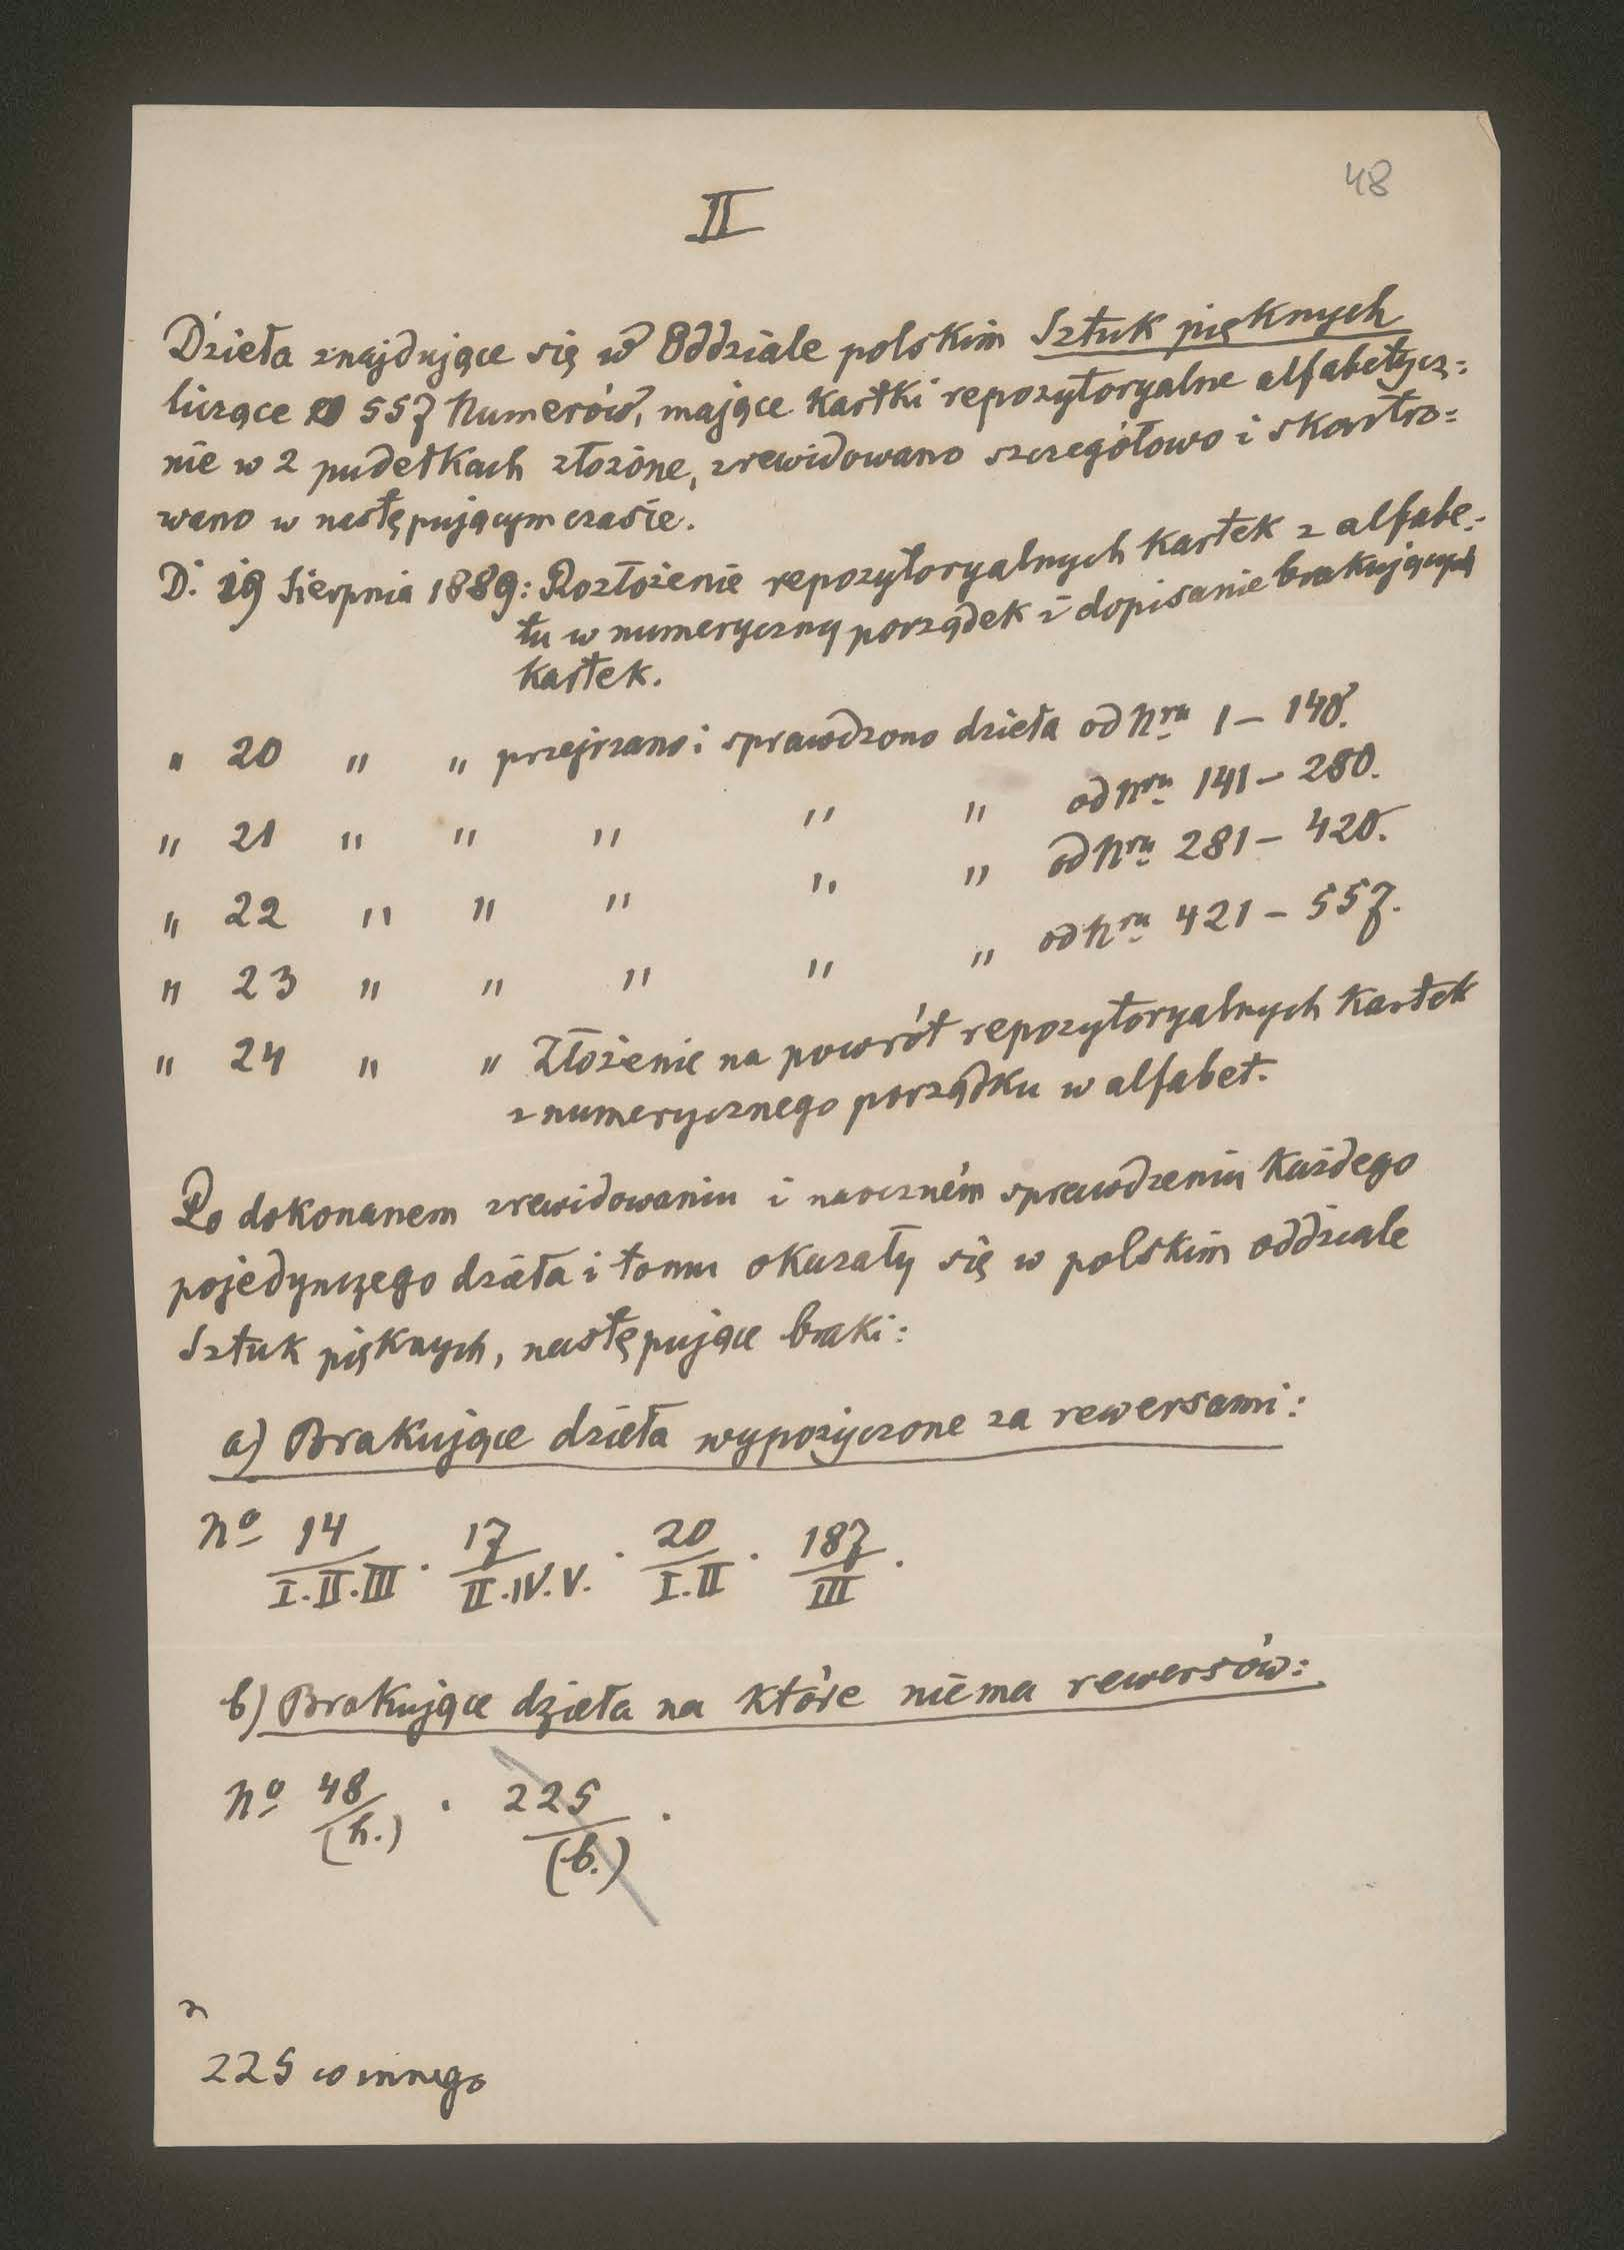 48
II
Dzieła znajdujące się w Oddziale polskim Sztuk pięknych
liczące 557 Numerów, mające kartki repozytoryalne alfabetycz=
nie w 2 pudełkach złożone, zrewidowano szczegółowo i skontro=
wano w następującym czasie.
D. 19 Sierpnia 1889: Rozłożenie repozytoryalnych kartek z alfabe=
tu w numeryczny porządek i dopisanie brakujących
kartek.
" 20 " " przejrzano i sprawdzono dzieła od Nru 1 – 140.
" 21 " " " " " od Nru 141 – 280.
" 22 " " " " " od Nru 281 – 420.
" 23 " " " " " od Nru 421 – 557.
" 24 " " Złożenie na powrót repozytoryalnych kartek
z numerycznego porządku w alfabet.
Po dokonanem zrewidowaniu i naoczném sprawdzeniu każdego
pojedynczego dzieła i tomu okazały się w polskim oddziale
Sztuk pięknych, następujące braki:
a) Brakujące dzieła wypożyczone za rewersami:
No 14/I.II.III . 17/II.IV.V. . 20/I.II . 187/III .
b) Brakujące dzieła na które niema rewersów:
No 48/(h.) . 225/(b.) .
225 w innego